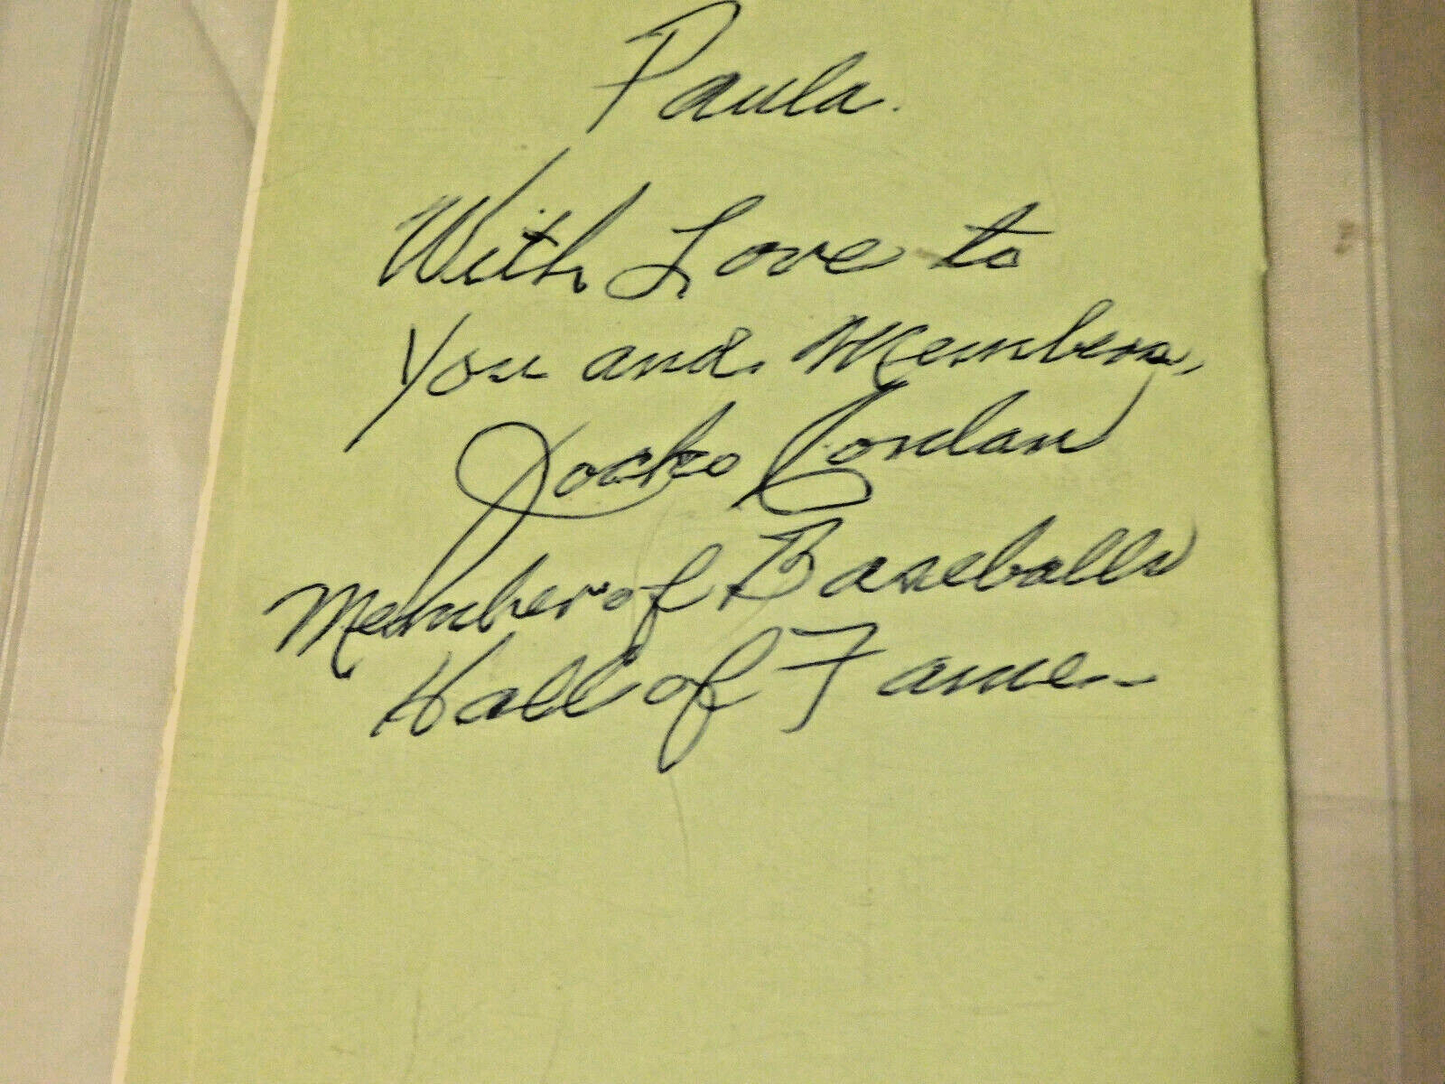 Paula.
With Love to
You and Members,
Jocko Conlan
Member of Baseballs
Hall of Fame